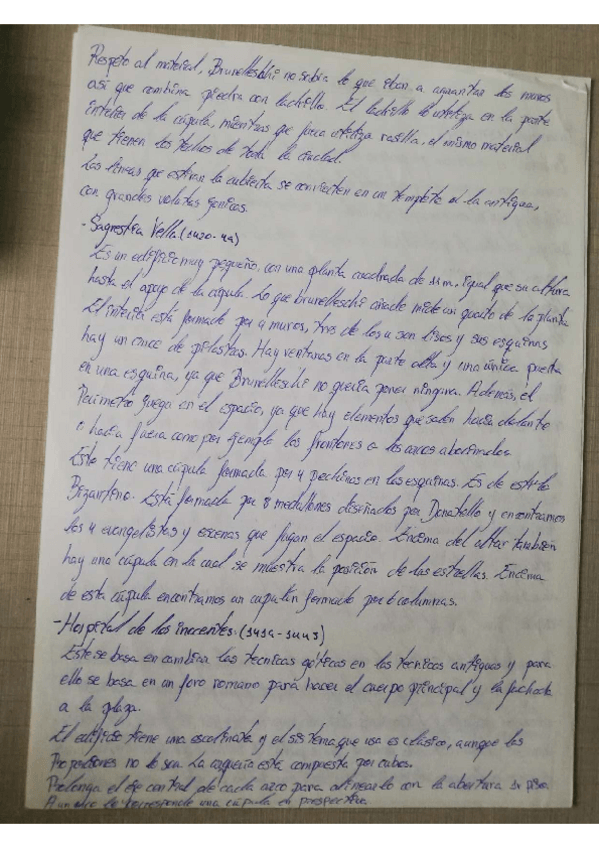 Respeto al material, Brunelleschi no sabía lo que iban a aguantar los muros
así que combina piedra con ladrillo. El ladrillo lo utiliza en la parte
interior de la cúpula, mientras que fuera utiliza rasilla, el mismo material
que tienen los techos de toda la ciudad.
Las líneas que estiran la cubierta se convierten en un templete a la antigua,
con grandes volutas jónicas.
- Sagrestia Vella (1420-29)
Es un edificio muy pequeño, con una planta cuadrada de 11m, igual que su altura
hasta el apoyo de la cúpula. Lo que brunelleschi añade mide un quarto de la planta
El interior está formado por 4 muros, tres de los 4 son lisos y sus esquinas
hay un cruce de pilastras. Hay ventanas en la parte alta y una única puerta
en una esquina, ya que Brunelleschi no quería poner ninguna. Además, el
Perímetro juega en el espacio, ya que hay elementos que salen hacia delante
o hacia fuera como por ejemplo los frontones o los arcos abocinados.
Este tiene una cúpula formada por 4 pechinas en las esquinas. Es de estilo
Bizantino. Está formada por 8 medallones diseñados por Donatello y encontramos
los 4 evangelistas y escenas que fugan el espacio. Encima del altar también
hay una cúpula en la cual se muestra la posición de las estrellas. Encima
de esta cúpula encontramos un cupulín formado por 6 columnas.
- Hospital de los inocentes. (1419-1445)
Este se basa en cambiar las tecnicas góticas en las técnicas antiguas y para
ello se basa en un foro romano para hacer el cuerpo principal y la fachada
a la plaza.
El edificio tiene una escalinata y el sistema que usa es clásico, aunque las
Proporciones no lo son. La arquería está compuesta por cubos.
Prolonga el eje central de cada arco para alinearlo con la abertura 1r piso.
A un arco le corresponde una cúpula en perspectiva.